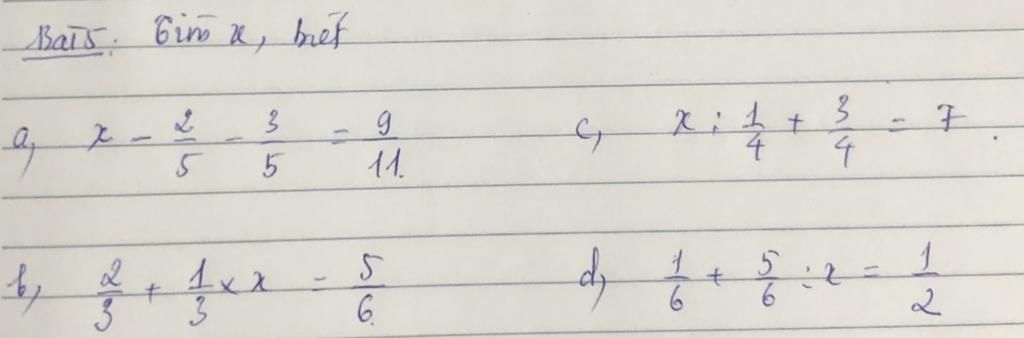 Bài 5: Tìm x, biết
a, x - 2/5 - 3/5 = 9/11    c, x : 1/4 + 3/4 = 7
b, 2/3 + 1/3 × x = 5/6    d, 1/6 + 5/6 : x = 1/2